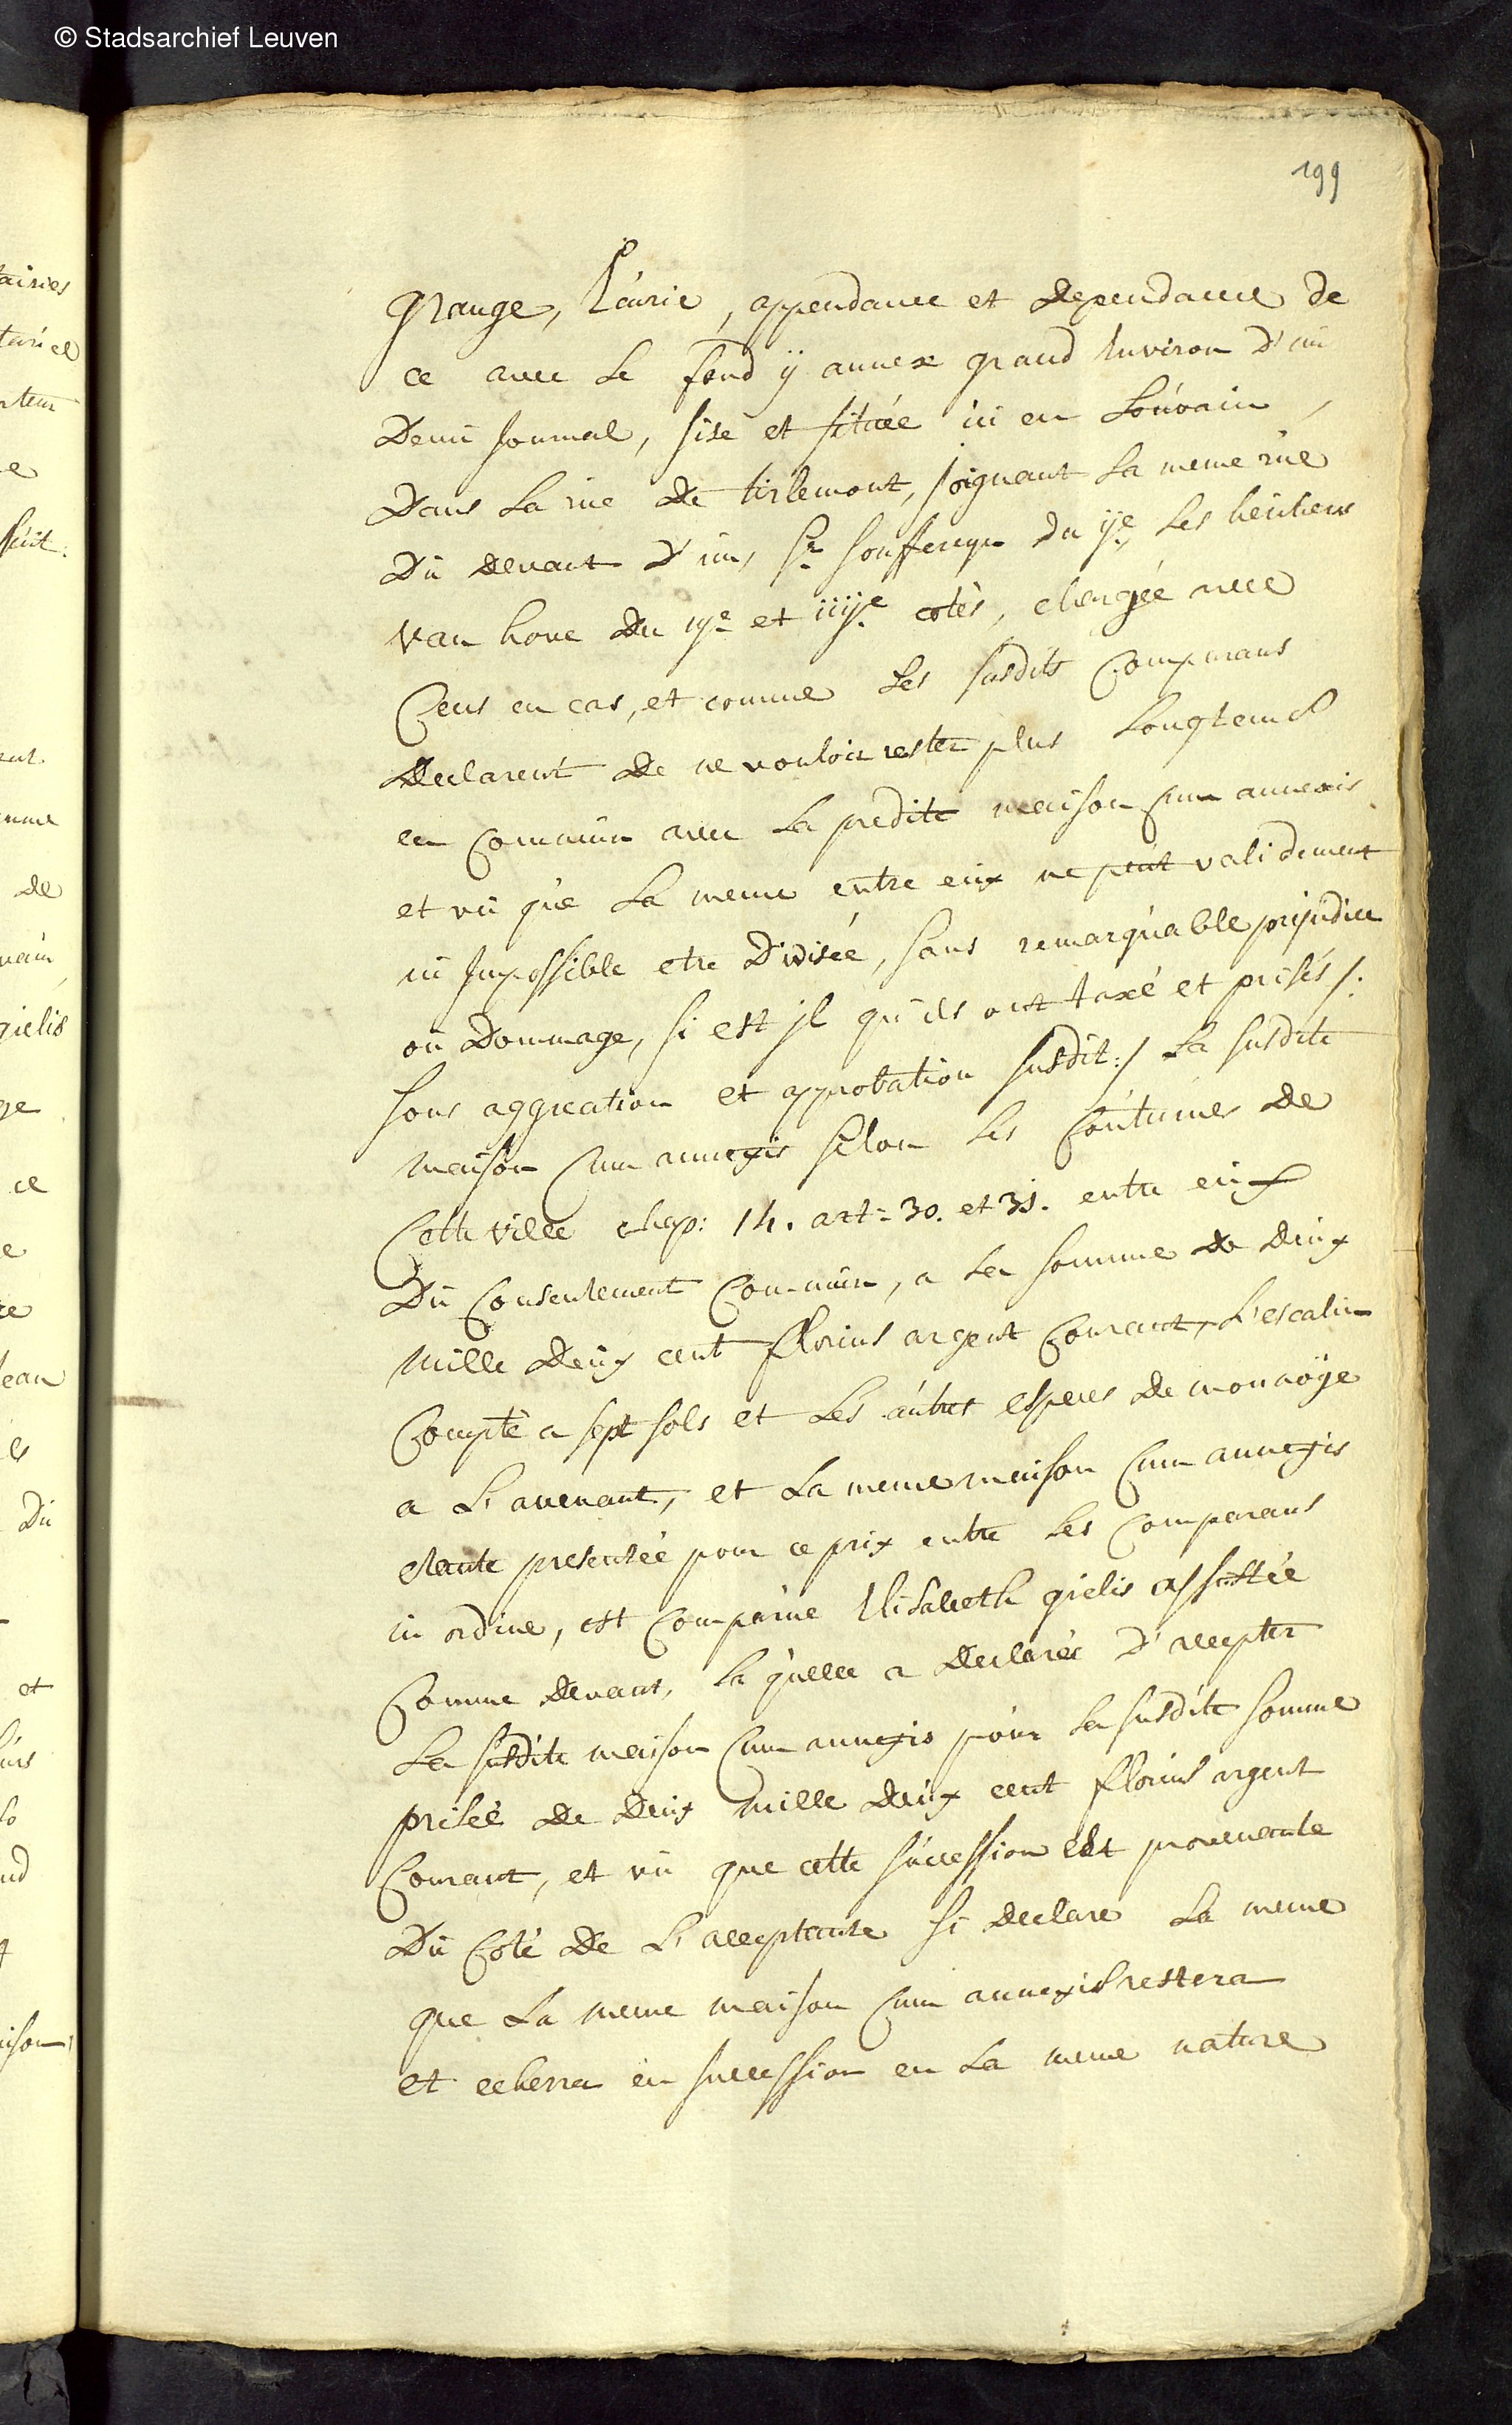 © Stadsarchief Leuven
199
grange, Ecúrie, appendance et dependance de
ce avec le fond ÿ annex grand Environ d'ùn
Demi Journal, sise et sitúée ici en Loúvain,
Dans la rúe de tirlemont, joignant la meme rúe
Dú devant d'ún, Sr. du ije., les heritiers
van hove du iije et iiije. cotés, chargée avec
Cens en cas, et comme les susdits Comparans
Declarent de ne vouloir rester plus Longtems
en Commún avec la predite maison Cum annexis
et vú que la meme entre eúx ne peút validement
ni Impossible etre Divisée, sans remarqúable prejudice
oú Dommage, si est jl qu'ils ont taxé et prisés /:
sous aggreation et approbation susdit: / La susdite
maison Cum annexis selon les Coútúmes de
Cette ville chap: 14. art: 30. et 31. entre eúx
Dú Consentement Commún, a la somme de deúx
mille deúx cent florins argent Courant, L'escalin
Compté a sept sols et Les aútres especes de monnoÿe
a L'avenant, et la meme maison Cum annexis
etante presentée pour ce prix entre les Comparans
in ordine, est Comparúe Elisabeth gielis assistée
Comme devant, la qúelle a declarée d'accepter
La susdite maison Cum annexis poúr la susdite somme
prisée de deúx mille deúx cent florins argent
Courant, et vú que cette súccession est provenante
Dú Coté de L'acceptante si declare la meme
que la meme maison Cum annexis restera
et echerra en succession en la meme nature
airies
tarice
e
súit.
de
vain
gielis
ge
ce
e
Jean
Dú
et
ison,